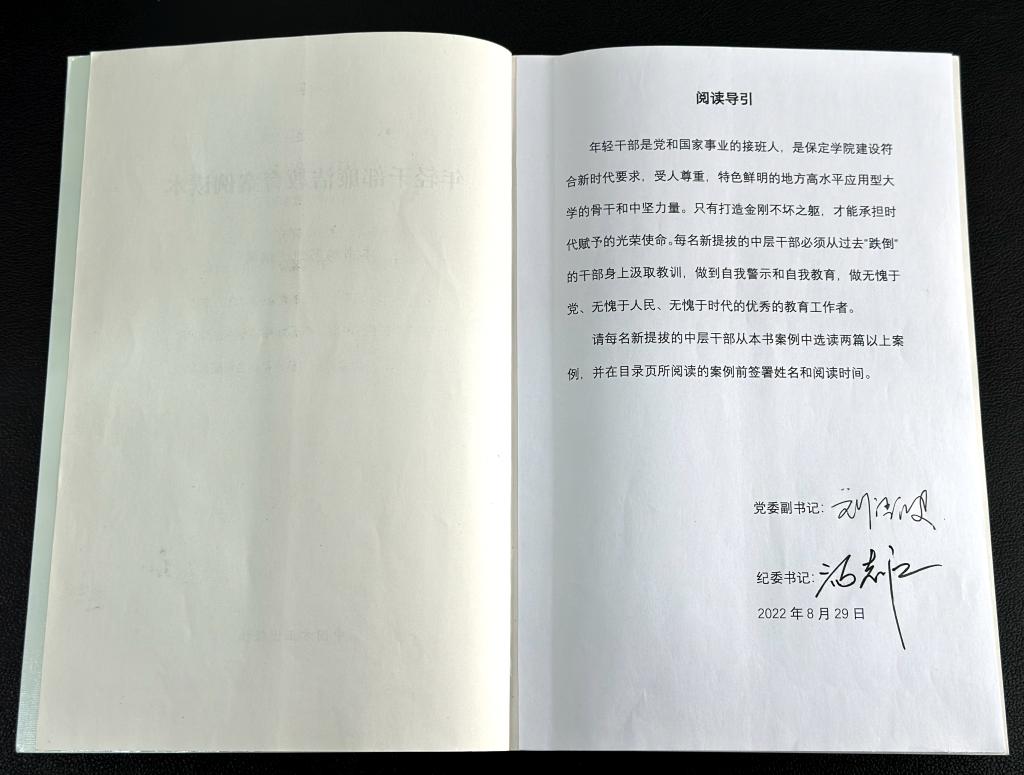 阅读导引
年轻干部是党和国家事业的接班人，是保定学院建设符
合新时代要求，受人尊重，特色鲜明的地方高水平应用型大
学的骨干和中坚力量。只有打造金刚不坏之躯，才能承担时
代赋予的光荣使命。每名新提拔的中层干部必须从过去“跌倒”
的干部身上汲取教训，做到自我警示和自我教育，做无愧于
党、无愧于人民、无愧于时代的优秀的教育工作者。
请每名新提拔的中层干部从本书案例中选读两篇以上案
例，并在目录页所阅读的案例前签署姓名和阅读时间。
党委副书记：
纪委书记：冯志江
2022 年 8 月 29 日